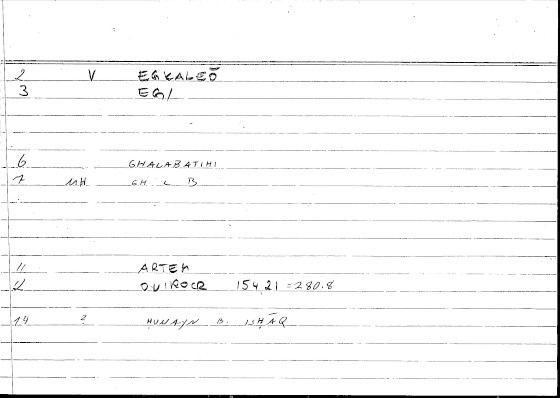 2 V EGKALEŌ
3 EG/
6 GHALABATIHI
7 MH GH L B
11 ARTEM
12 OVIROCR 154,21 = 280.8
14 ? ḤUNAYN B. ISḤĀQ